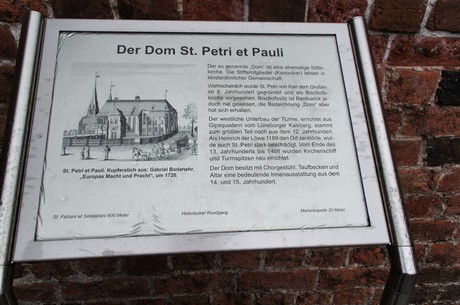 Der Dom St. Petri et Pauli
Der so genannte „Dom“ ist eine ehemalige Stifts-
kirche. Die Stiftsmitglieder (Kanoniker) lebten in
klosterähnlicher Gemeinschaft.
Wahrscheinlich wurde St. Petri von Karl dem Großen
im 8. Jahrhundert gegründet und als Bischofs-
kirche vorgesehen. Bischofssitz ist Bardowick je-
doch nie gewesen, die Bezeichnung „Dom“ aber
hat sich erhalten.
Der westliche Unterbau der Türme, errichtet aus
Gipsquadern vom Lüneburger Kalkberg, stammt
zum größten Teil noch aus dem 12. Jahrhundert.
Als Heinrich der Löwe 1189 den Ort zerstörte, wur-
de auch St. Petri stark beschädigt. Vom Ende des
13. Jahrhunderts bis 1468 wurden Kirchenschiff
und Turmspitzen neu errichtet.
Der Dom besitzt mit Chorgestühl, Taufbecken und
Altar eine bedeutende Innenausstattung aus dem
14. und 15. Jahrhundert.
St. Petri et Pauli. Kupferstich aus: Gabriel Bodenehr,
„Europas Macht und Pracht“, um 1720.
St. Fabiani et Sebastiani 600 Meter
Historischer Rundgang
Marienkapelle 50 Meter